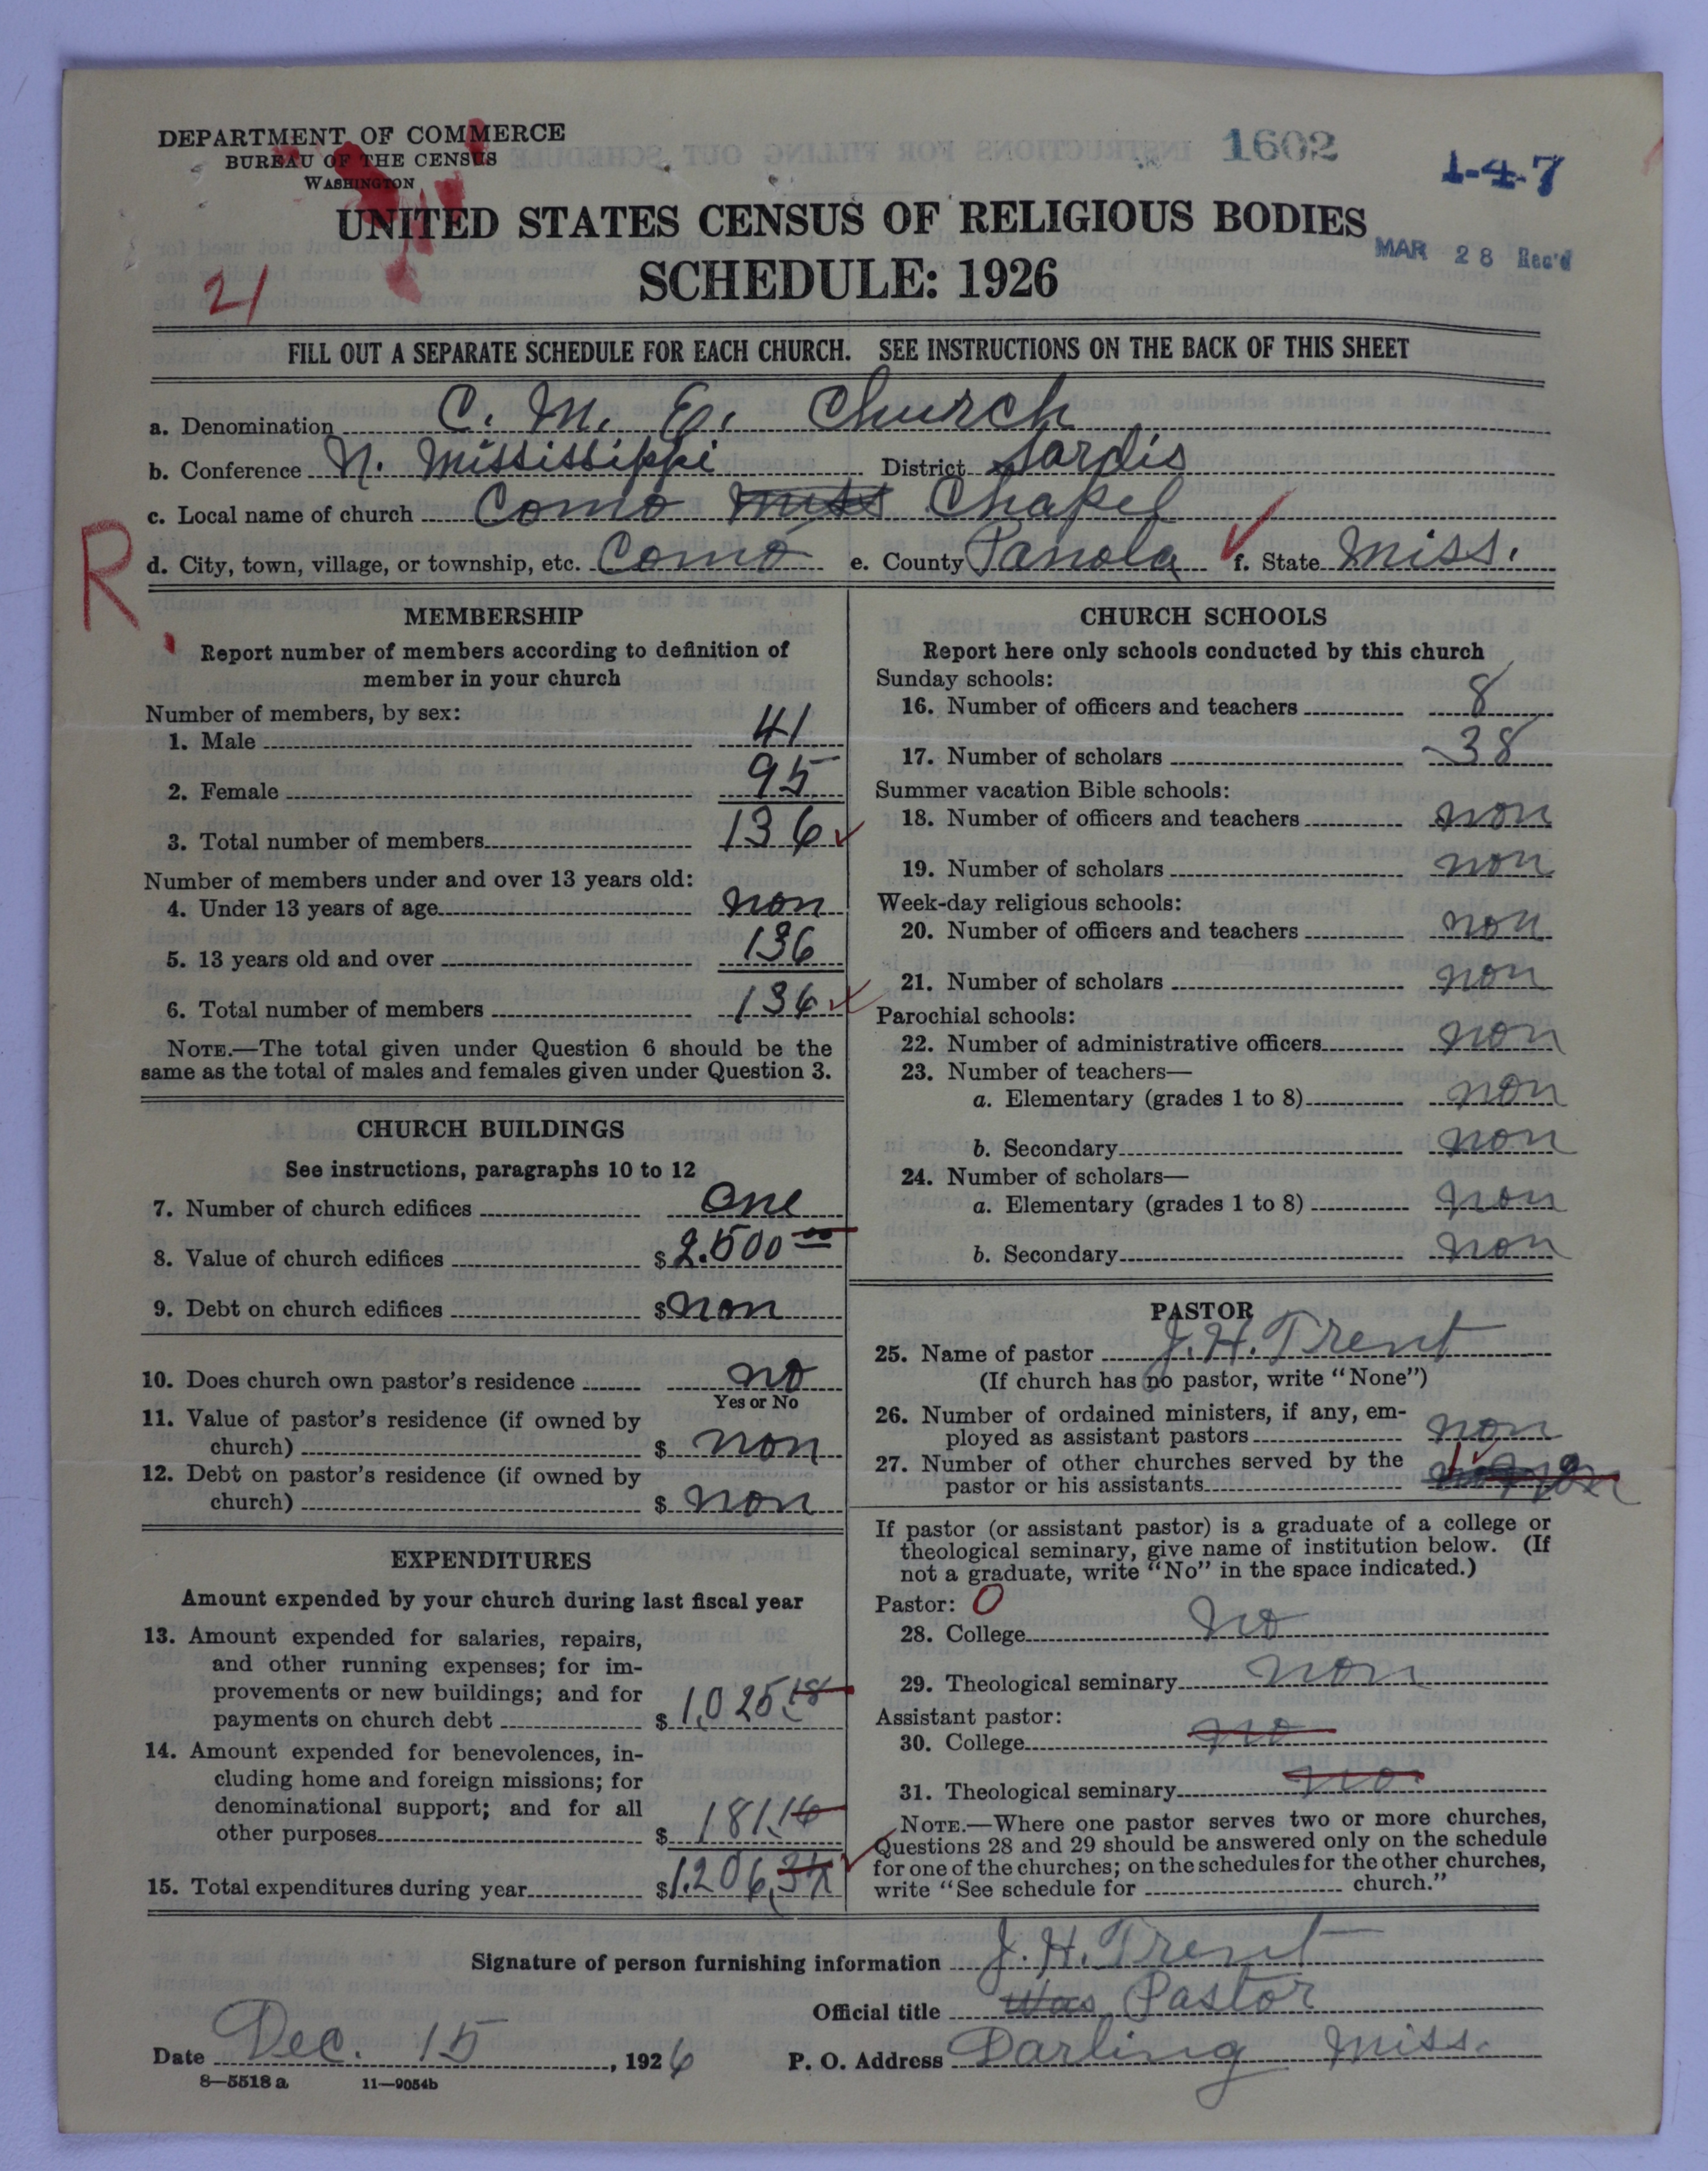 DEPARTMENT OF COMMERCE
BUREAU OF THE CENSUS
WASHINGTON
1602
1-4-7
UNITED STATES CENSUS OF RELIGIOUS BODIES
MAR 28 Rec'd
SCHEDULE: 1926
21
FILL OUT A SEPARATE SCHEDULE FOR EACH CHURCH. SEE INSTRUCTIONS ON THE BACK OF THIS SHEET
a. Denomination C. M. E. Church
b. Conference N. Mississippi District Sardis
c. Local name of church Como Miss Chapel
R.
d. City, town, village, or township, etc. Como e. County Panola f. State Miss.
MEMBERSHIP
Report number of members according to definition of
member in your church
Number of members, by sex:
1. Male 41
2. Female 95
3. Total number of members 136
Number of members under and over 13 years old:
4. Under 13 years of age non
5. 13 years old and over 136
6. Total number of members 136
NOTE.—The total given under Question 6 should be the
same as the total of males and females given under Question 3.
CHURCH BUILDINGS
See instructions, paragraphs 10 to 12
7. Number of church edifices One
8. Value of church edifices $2.500 00
9. Debt on church edifices $non
10. Does church own pastor's residence no
Yes or No
11. Value of pastor's residence (if owned by
church) $ non
12. Debt on pastor's residence (if owned by
church) $ non
EXPENDITURES
Amount expended by your church during last fiscal year
13. Amount expended for salaries, repairs,
and other running expenses; for im-
provements or new buildings; and for
payments on church debt $1,025.18
14. Amount expended for benevolences, in-
cluding home and foreign missions; for
denominational support; and for all
other purposes $ 181.16
15. Total expenditures during year $1.206,34
CHURCH SCHOOLS
Report here only schools conducted by this church
Sunday schools:
16. Number of officers and teachers 8
17. Number of scholars 38
Summer vacation Bible schools:
18. Number of officers and teachers non
19. Number of scholars non
Week-day religious schools:
20. Number of officers and teachers non
21. Number of scholars non
Parochial schools:
22. Number of administrative officers non
23. Number of teachers—
a. Elementary (grades 1 to 8) non
b. Secondary non
24. Number of scholars—
a. Elementary (grades 1 to 8) non
b. Secondary non
PASTOR
25. Name of pastor J. H. Trent
(If church has no pastor, write "None")
26. Number of ordained ministers, if any, em-
ployed as assistant pastors non
27. Number of other churches served by the
pastor or his assistants
If pastor (or assistant pastor) is a graduate of a college or
theological seminary, give name of institution below. (If
not a graduate, write "No" in the space indicated.)
Pastor: 0
28. College No
29. Theological seminary non
Assistant pastor:
30. College no
31. Theological seminary no
NOTE.—Where one pastor serves two or more churches,
Questions 28 and 29 should be answered only on the schedule
for one of the churches; on the schedules for the other churches,
write "See schedule for church."
Signature of person furnishing information J. H. Trent
Official title Was Pastor
Date Dec. 15, 1926 P. O. Address Darling Miss.
8—5518 a 11—9054b